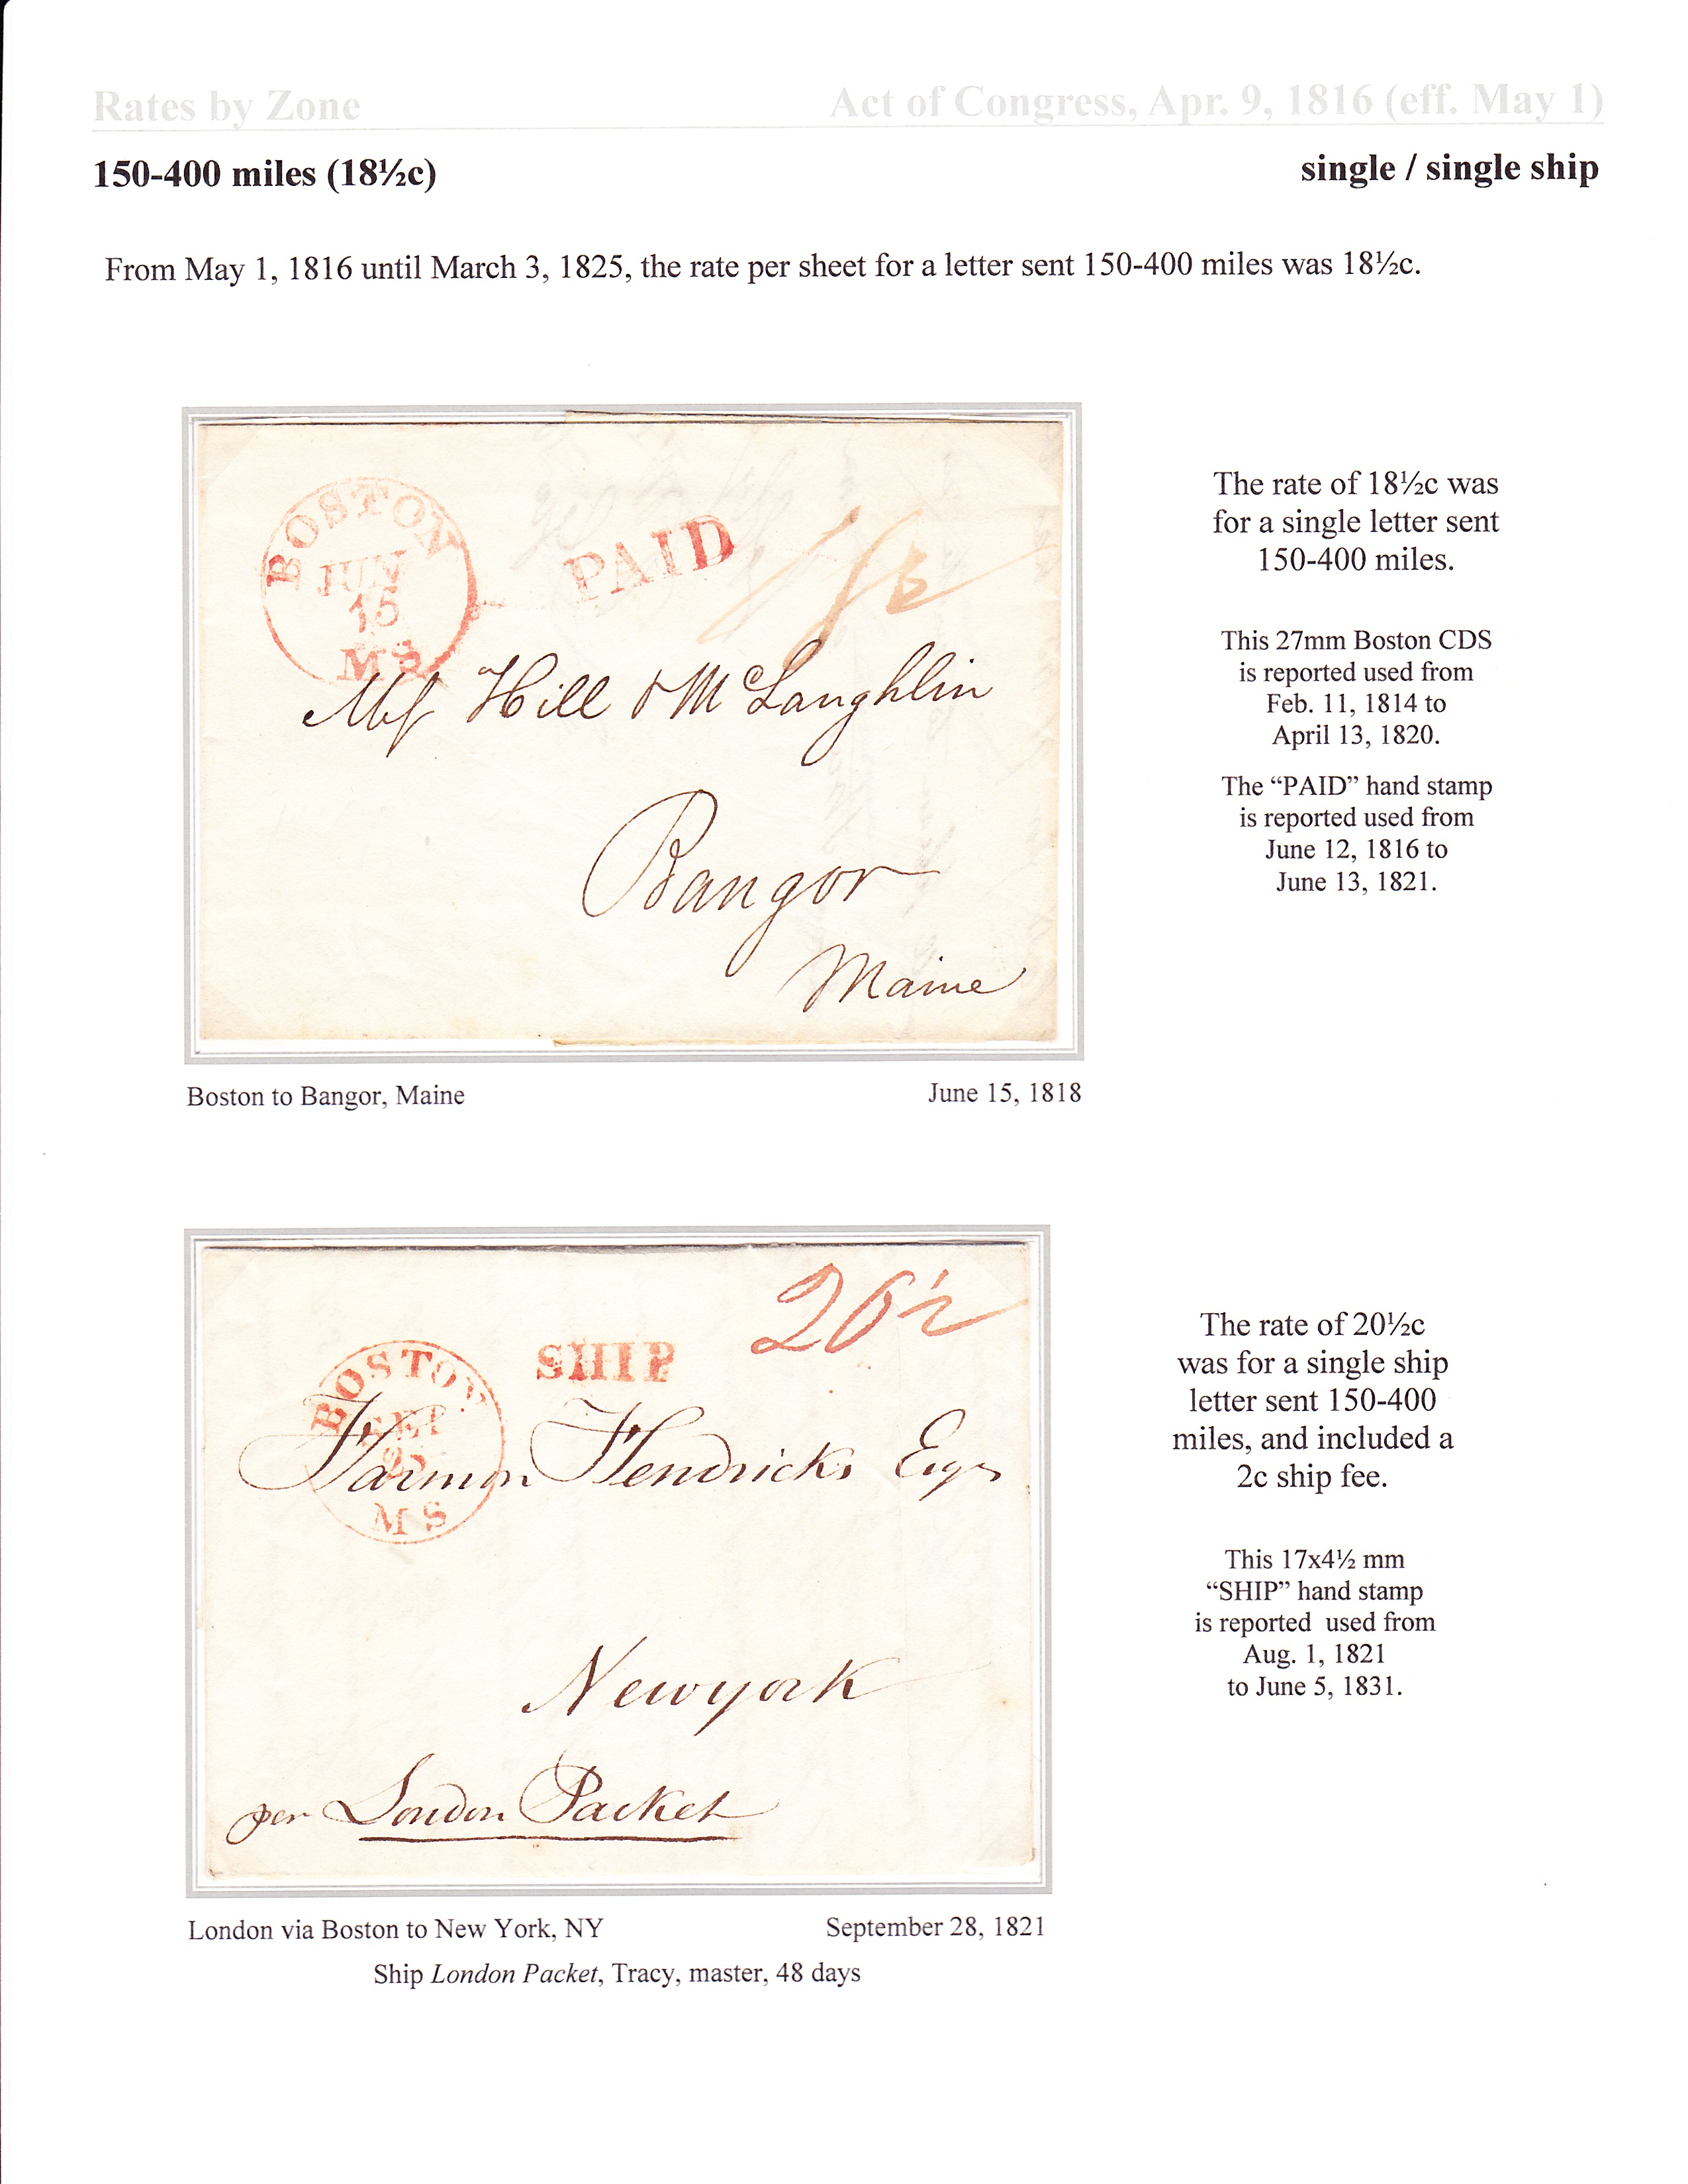 Rates by Zone
Act of Congress, Apr. 9, 1816 (eff. May 1)
150-400 miles (18½c)
single / single ship
From May 1, 1816 until March 3, 1825, the rate per sheet for a letter sent 150-400 miles was 18½c.
BOSTON
JUN
15
MS
PAID
Hill & McLaughlin
Bangor
Maine
The rate of 18½c was
for a single letter sent
150-400 miles.
This 27mm Boston CDS
is reported used from
Feb. 11, 1814 to
April 13, 1820.
The “PAID” hand stamp
is reported used from
June 12, 1816 to
June 13, 1821.
Boston to Bangor, Maine
June 15, 1818
20½
SHIP
BOSTON
SEP
MS
Harmon Hendricks Esqr
Newyork
per London Packet
The rate of 20½c
was for a single ship
letter sent 150-400
miles, and included a
2c ship fee.
This 17x4½ mm
“SHIP” hand stamp
is reported used from
Aug. 1, 1821
to June 5, 1831.
London via Boston to New York, NY
September 28, 1821
Ship London Packet, Tracy, master, 48 days